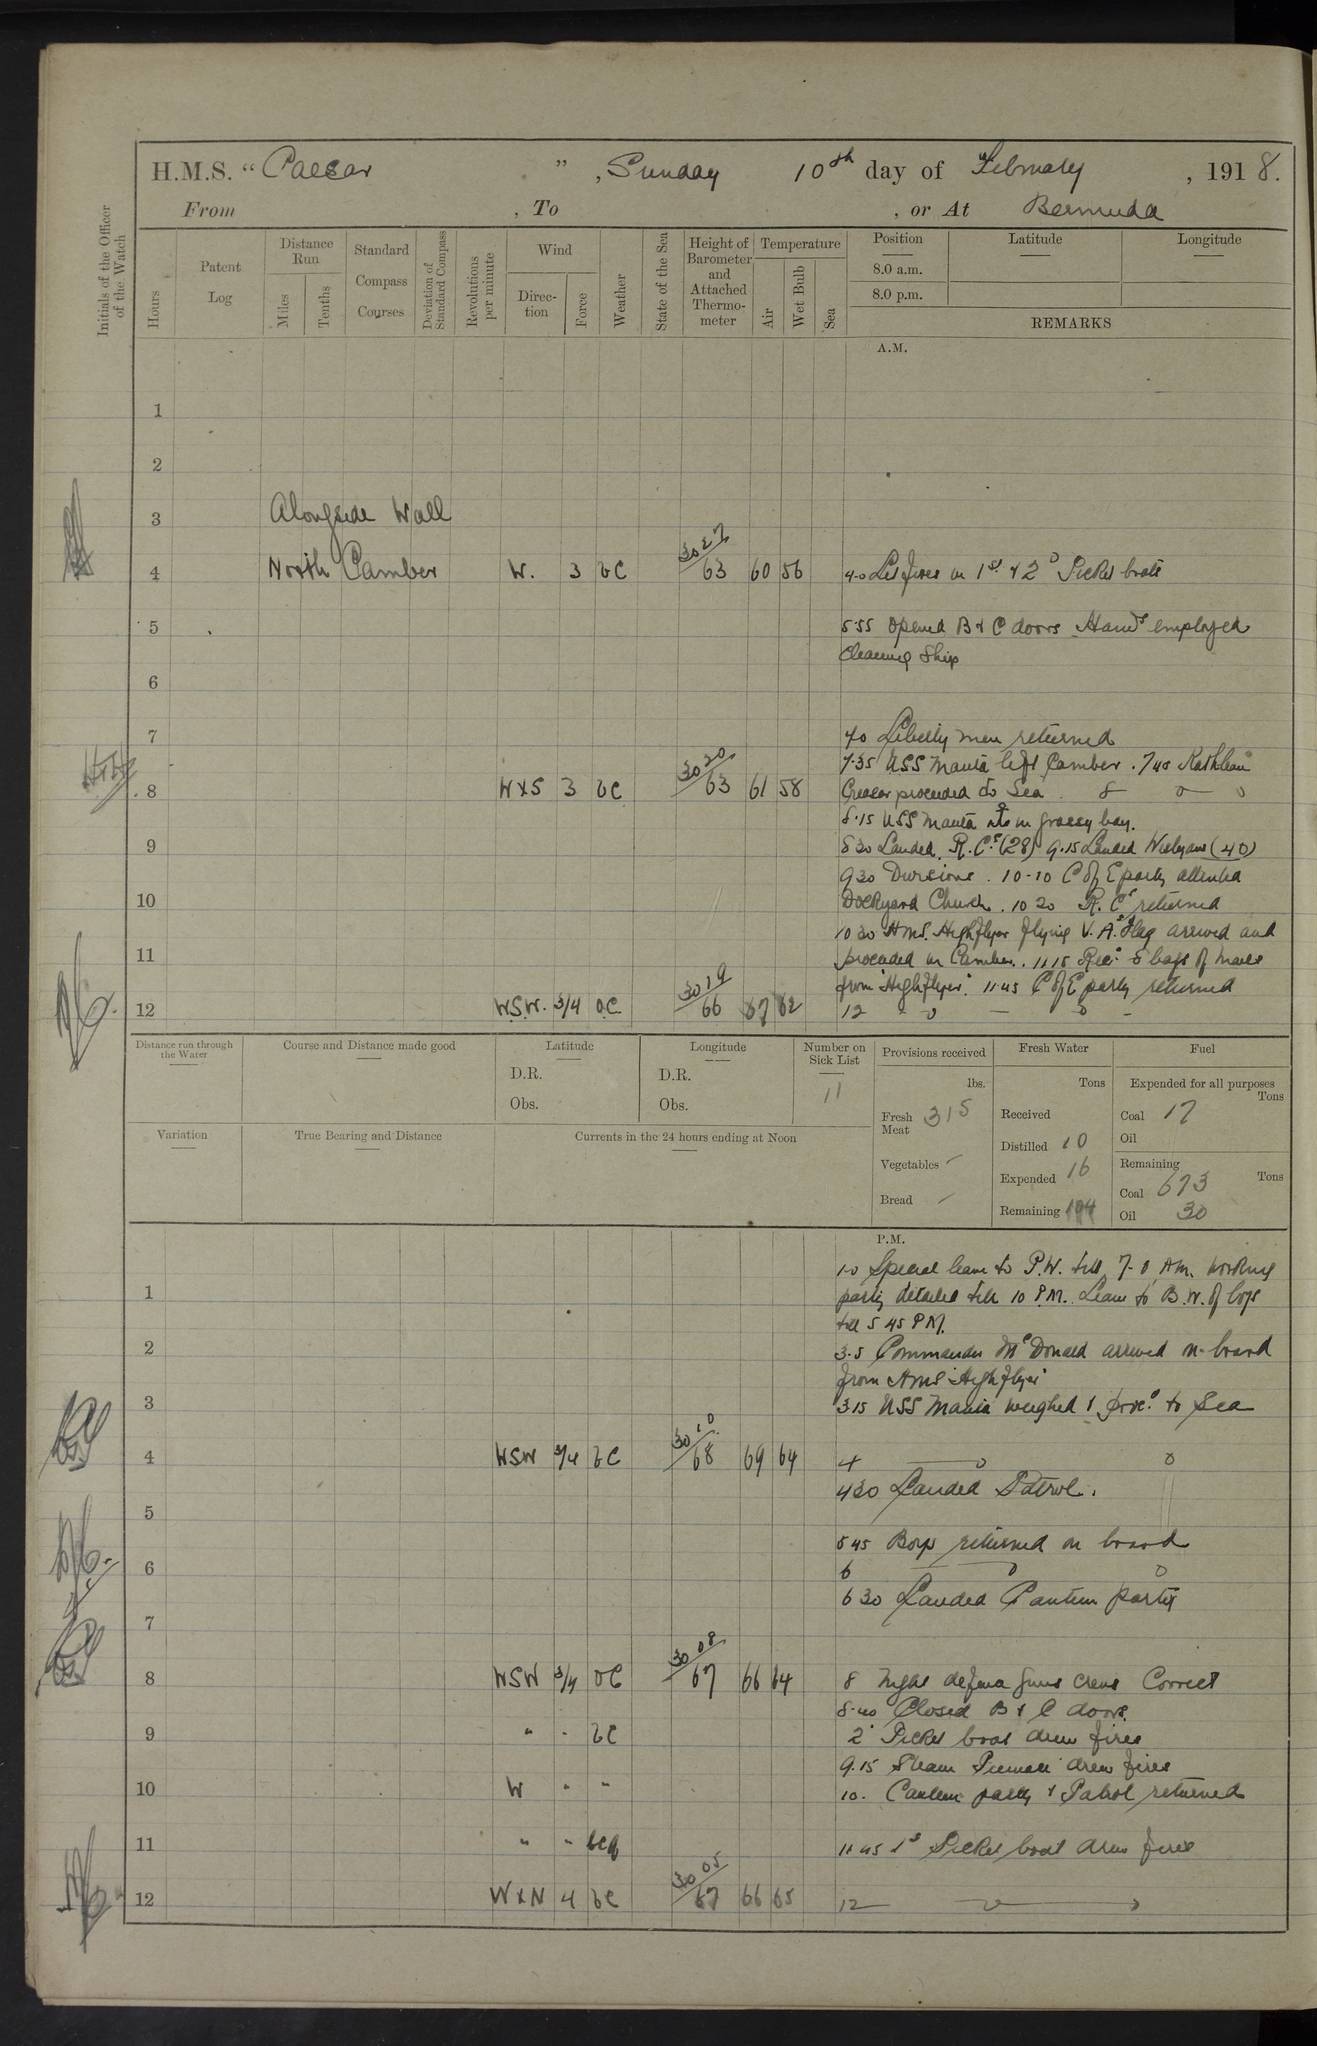 H.M.S. " Caesar ", Sunday 10th day of February, 1918.
From , To , or At Bermuda
Initials of the Officer of the Watch
Hours
Patent Log
Distance Run
Miles
Tenths
Standard Compass Courses
Deviation of Standard Compass
Revolutions per minute
Wind
Direction
Force
Weather
State of the Sea
Height of Barometer and Attached Thermometer
Temperature
Air
Wet Bulb
Sea
Position
Latitude
Longitude
8.0 a.m.
8.0 p.m.
REMARKS
A.M.
1
2
3 Alongside Wall
4 North Camber W. 3 bc 30 27/63 60 56 4-0 Lit fires in 1st & 2d Picket boats
5 5.55 Opened B & C doors Hands employed
Cleaning Ship
6
7 7.0 Liberty men returned
7.35 USS Manta left Camber. 7 45 Kathleen
8 W x S 3 bc 30 20/63 61 58 proceeded to Sea 8
8.15 USS Manta in grassy bay.
9 8 30 Landed R.Cs (28) 9.15 Landed Wesleyans (40)
9 30 Divisions. 10-10 C of E party attended
10 Dockyard Church. 10 20 R.Cs returned
10 30 HMS. Highflyer flying V.A's Flag arrived and
11 proceeded in Camber. 11 15 Recd bags of mails
from "Highflyer". 11.45 C of E party returned
12 W.S.W. 3/4 o.c. 30 19/66 67 62 12
Distance run through the Water
Course and Distance made good
Latitude
D.R.
Obs.
Longitude
D.R.
Obs.
Number on Sick List
11
Provisions received
lbs.
Fresh Meat 315
Vegetables -
Bread -
Fresh Water
Tons
Received
Distilled 10
Expended 16
Remaining 194
Fuel
Expended for all purposes
Tons
Coal 17
Oil
Remaining
Tons
Coal 673
Oil 30
Variation
True Bearing and Distance
Currents in the 24 hours ending at Noon
P.M.
1-0 Special leave to P.W. till 7-0 AM. working
1 party detailed till 10 P.M. Leave to B.W. of boys
till 5 45 PM.
2 3.5 Commander McDonald arrived on board
from HMS "Highflyer"
3 3 15 USS Manta weighed & proc'd to Sea
4 WSW 3/4 bc 30 10/68 69 64 4
4 30 Landed Patrol.
5
5 45 Boys returned on board
6 6
6 30 Landed Canteen party
7
8 WSW 3/4 oc 30 08/67 66 64 8 Night defence guns crews Correct
8.40 Closed B & C doors.
9 " - bc 2d Picket boat drew fires
9.15 Steam Pinnace drew fires
10 W " " 10. Canteen party & Patrol returned
11 " " bcq 11 45 1st Picket boat drew fires
12 W x N 4 bc 30 05/67 66 65 12